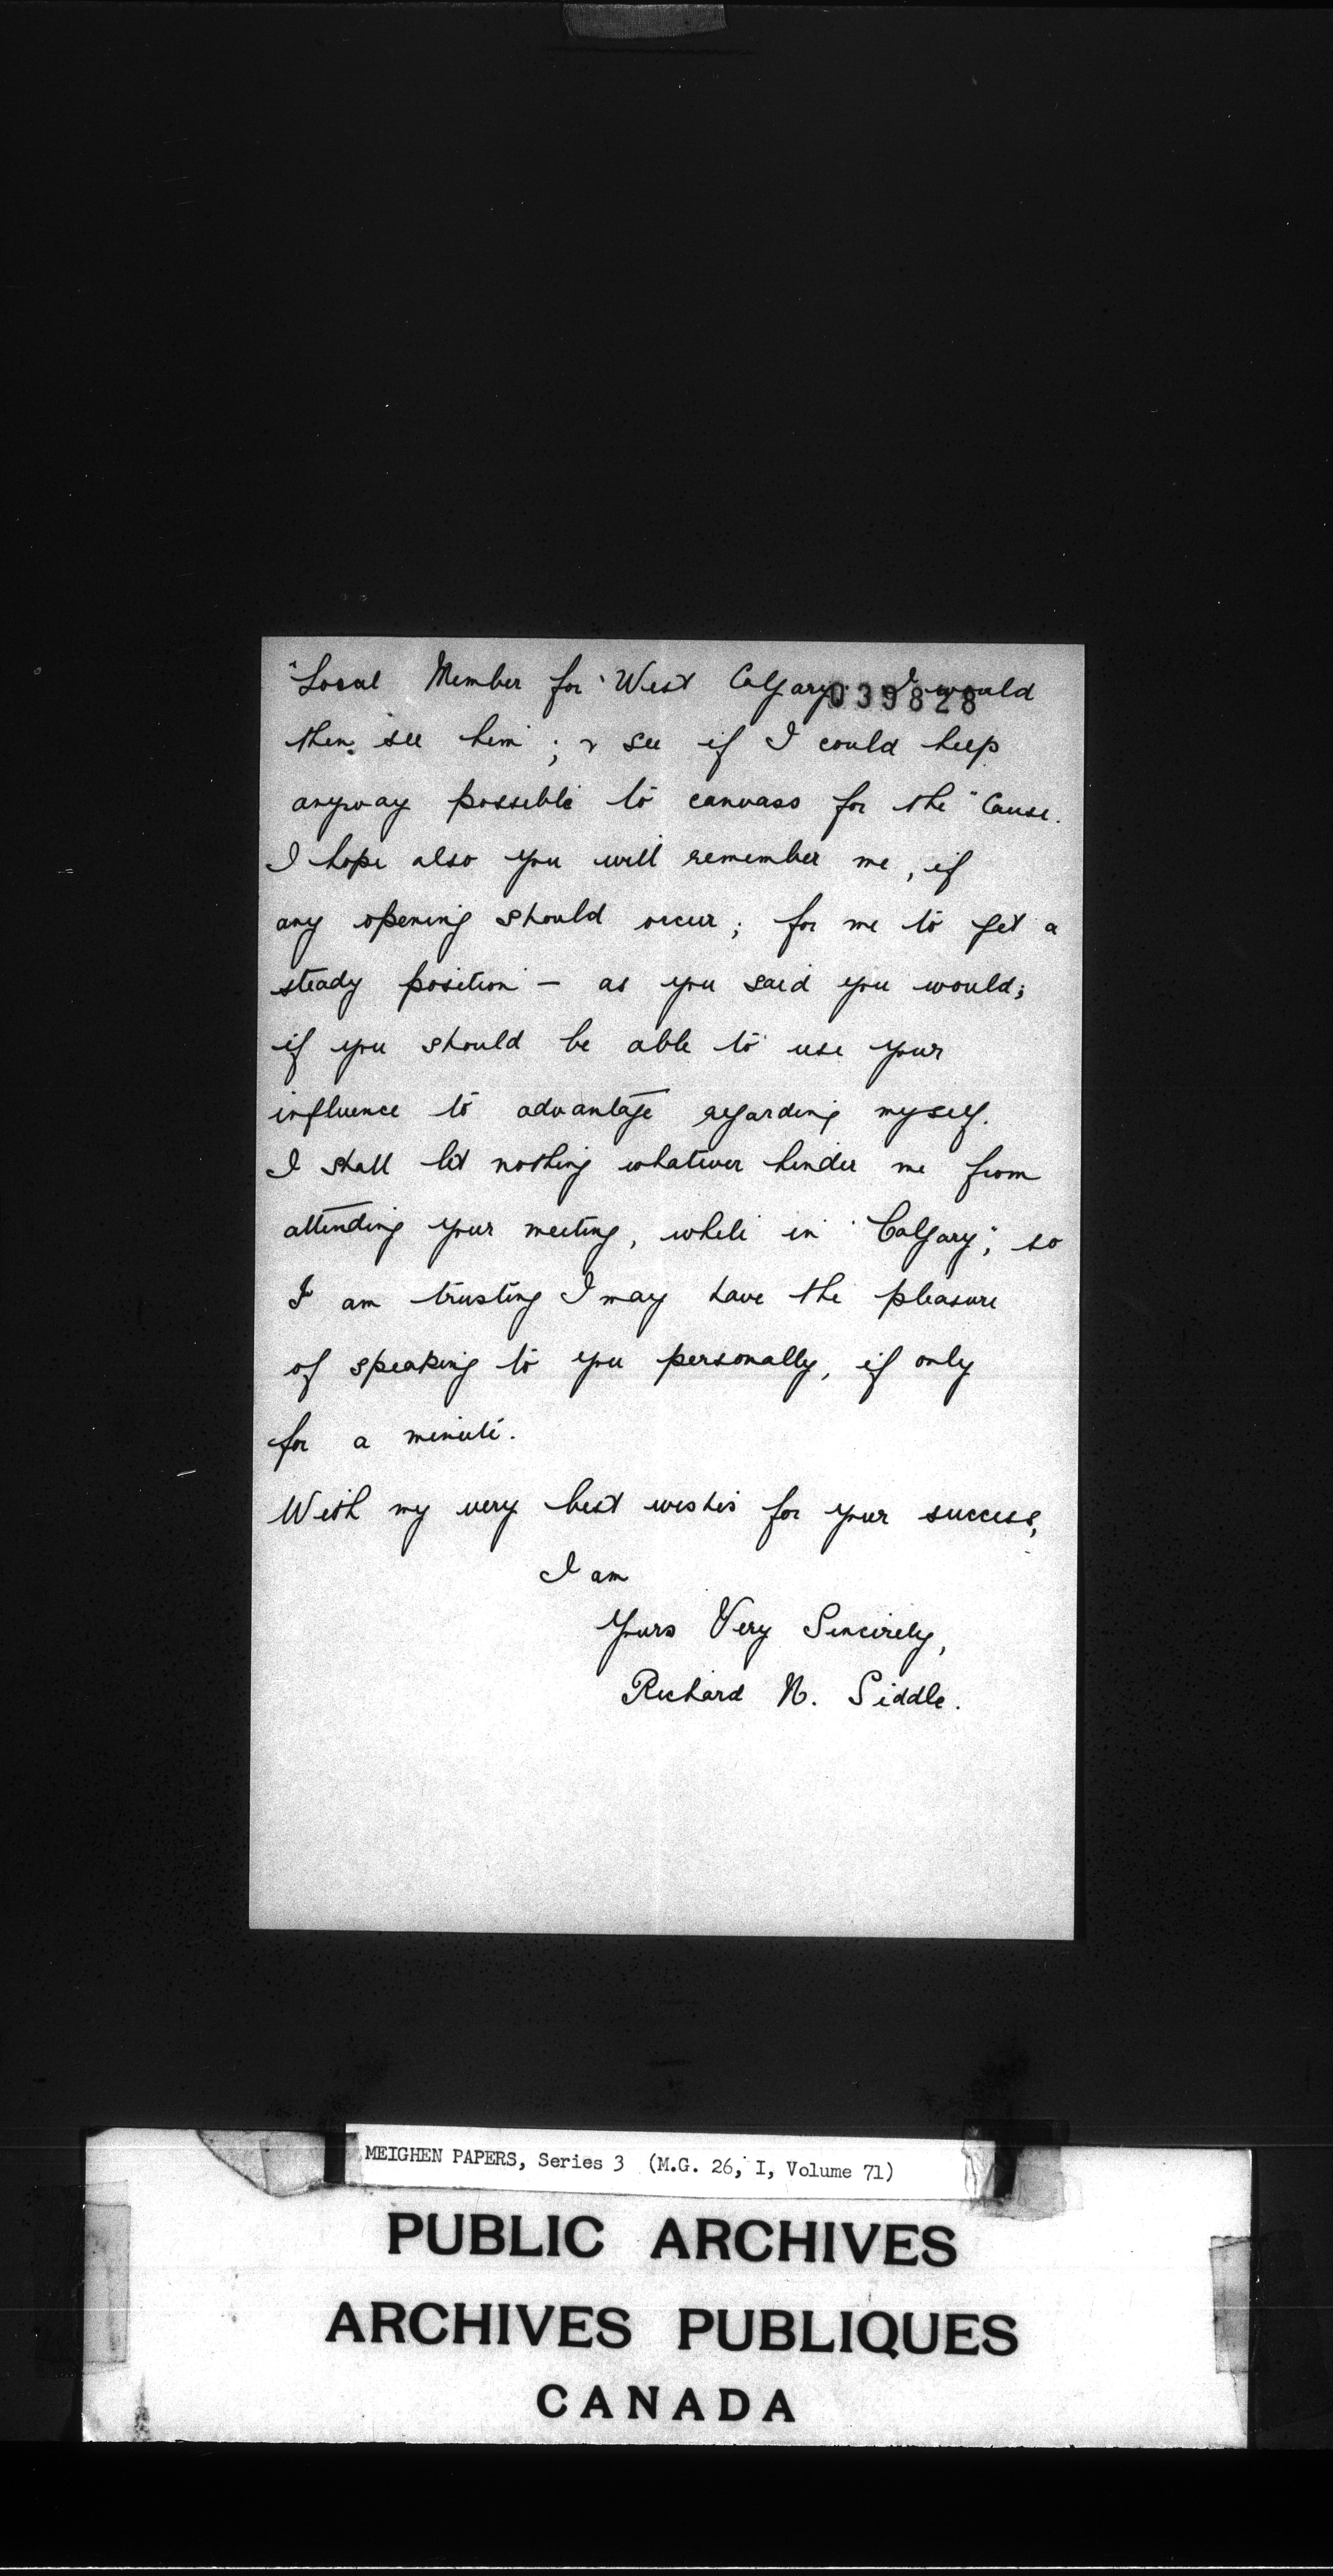 "Local Member for West Calgary. I would
039828
then see him; & see if I could help
anyway possible to canvass for the "Cause.
I hope also you will remember me, if
any opening should occur; for me to get a
steady position – as you said you would;
if you should be able to use your
influence to advantage regarding myself.
I shall let nothing whatever hinder me from
attending your meeting, while in "Calgary"; so
I am trusting I may have the pleasure
of speaking to you personally, if only
for a minute.
With my very best wishes for your success,
I am
Yours Very Sincerely,
Richard N. Siddle.
MEIGHEN PAPERS, Series 3 (M.G. 26, I, Volume 71)
PUBLIC ARCHIVES
ARCHIVES PUBLIQUES
CANADA